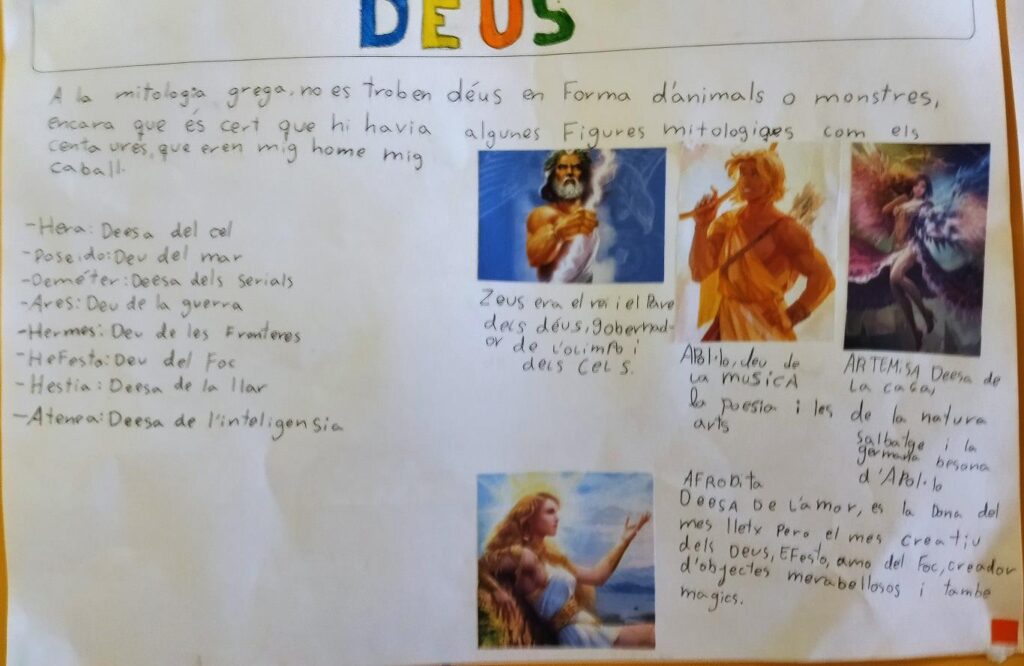 DEUS
A la mitologia grega, no es troben déus en Forma d'animals o monstres,
encara que és cert que hi havia algunes Figures mitologiqes com els
centaures, que eren mig home mig
caball.
-Hera: Deesa del cel
-Poseido: Deu del mar
-Deméter: Deesa dels serials
-Ares: Deu de la guerra
-Hermes: Deu de les Fronteres
-HeFesto: Deu del Foc
-Hestia: Deesa de la llar
-Atenea: Deesa de l'inteligensia
Zeus era el rei i el Pare
dels déus, gobernad-
or de l'olimpo i
dels cels.
APol·lo, deu de
La musica
la poesia i les
arts
ARTEMISA Deesa de
La casa,
de la natura
salbatge i la
germana besona
d'APol·lo
AFRODita
DEESA DE L'AMOR, es la Dona del
mes lletx Pero el mes creatiu
dels Deus, EFesto, amo del Foc, creador
d'objectes merabellosos i tambe
magics.